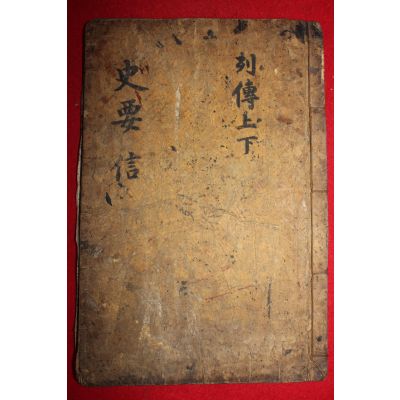 列傳上下
史要 信